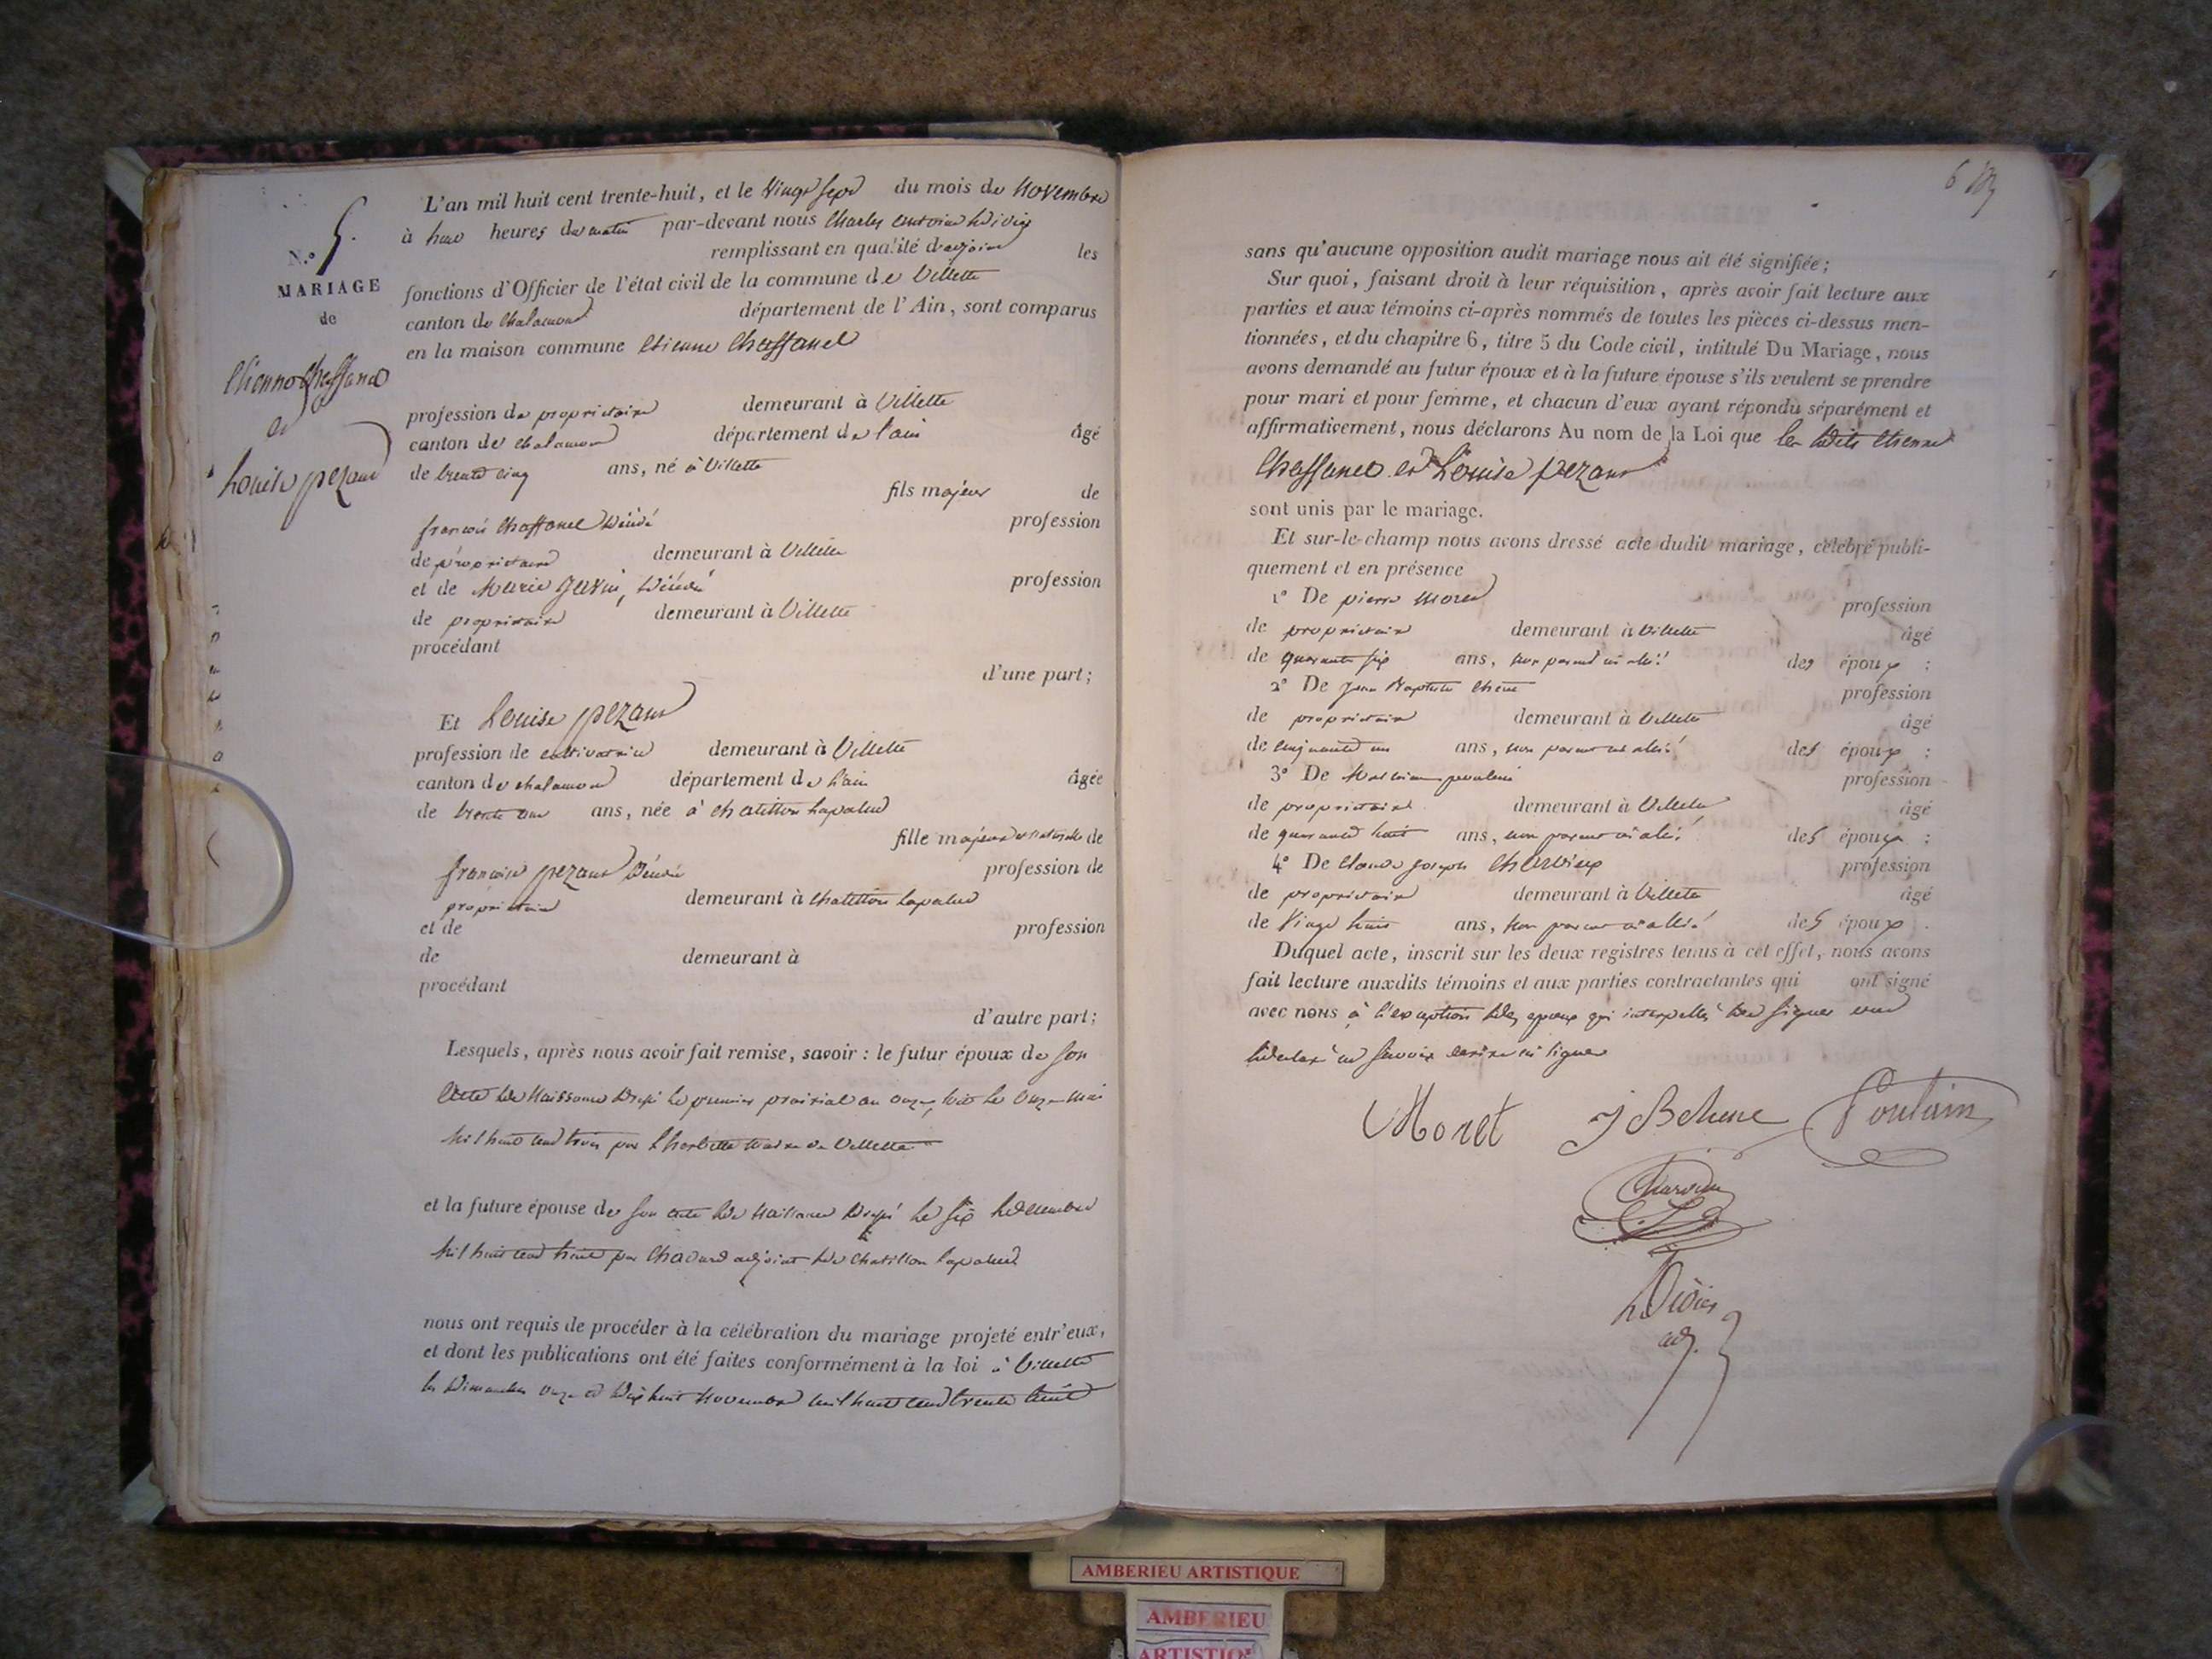 N.º 5.
MARIAGE
de
Etienne Chaffanel
et
Louise pezant
L'an mil huit cent trente-huit, et le Vingt sept du mois de novembre
à heures du matin par-devant nous Charles antoine Didier
remplissant en qualité d'adjoint les
fonctions d'Officier de l'état civil de la commune de Villette
canton de Chalamont département de l'Ain, sont comparus
en la maison commune Etienne Chaffanel
profession de propriétaire demeurant à Villette
canton de chalamont département de l'ain âgé
de trente cinq ans, né à Villette
fils majeur de
françois Chaffanel Décédé profession
de propriétaire demeurant à Villette
et de Marie profession
de propriétaire demeurant à Villette
procédant
d'une part;
Et Louise pezant
profession de cultivatrice demeurant à Villette
canton de chalamont département de l'ain âgée
de trente ans, née à chatillon lapalud
fille majeure et naturelle de
pezant Décédé profession de
propriétaire demeurant à chatillon lapalud
et de profession
de demeurant à
procédant
d'autre part;
Lesquels, après nous avoir fait remise, savoir : le futur époux de son
acte de Naissance Dressé le premier prairial an onze, soit le onze mai
mil huit cent trois par maire de Villette
et la future épouse de son acte de Naissance Dressé le six décembre
mil huit cent par adjoint de Chatillon lapalud
nous ont requis de procéder à la célébration du mariage projeté entr'eux,
et dont les publications ont été faites conformément à la loi à Villette
les Dimanches onze et Dix huit Novembre mil huit cent trente huit
6
sans qu'aucune opposition audit mariage nous ait été signifiée;
Sur quoi, faisant droit à leur réquisition, après avoir fait lecture aux
parties et aux témoins ci-après nommés de toutes les pièces ci-dessus men-
tionnées, et du chapitre 6, titre 5 du Code civil, intitulé Du Mariage, nous
avons demandé au futur époux et à la future épouse s'ils veulent se prendre
pour mari et pour femme, et chacun d'eux ayant répondu séparément et
affirmativement, nous déclarons Au nom de la Loi que les dits Etienne
Chaffanel et Louise pezant
sont unis par le mariage.
Et sur-le-champ nous avons dressé acte dudit mariage, célébré publi-
quement et en présence
1º De pierre Moret profession
de propriétaire demeurant à Villette âgé
de quarante six ans, non parent ni allié des époux ;
2º De Jean Baptiste Chene profession
de propriétaire demeurant à Villette âgé
de cinquante un ans, non parent ni allié des époux ;
3º De profession
de propriétaire demeurant à Villette âgé
de quarante huit ans, non parent ni allié des époux ;
4º De Claude joseph Charvieux profession
de propriétaire demeurant à Villette âgé
de Vingt huit ans, non parent ni allié des époux .
Duquel acte, inscrit sur les deux registres tenus à cet effet, nous avons
fait lecture auxdits témoins et aux parties contractantes qui ont signé
avec nous à l'exception des époux qui interpellés de signer ont
déclaré ne savoir écrire ni signer
Moret J B Chene Poulain
Didier
adj.
AMBERIEU ARTISTIQUE
AMBERIEU
ARTISTIQUE